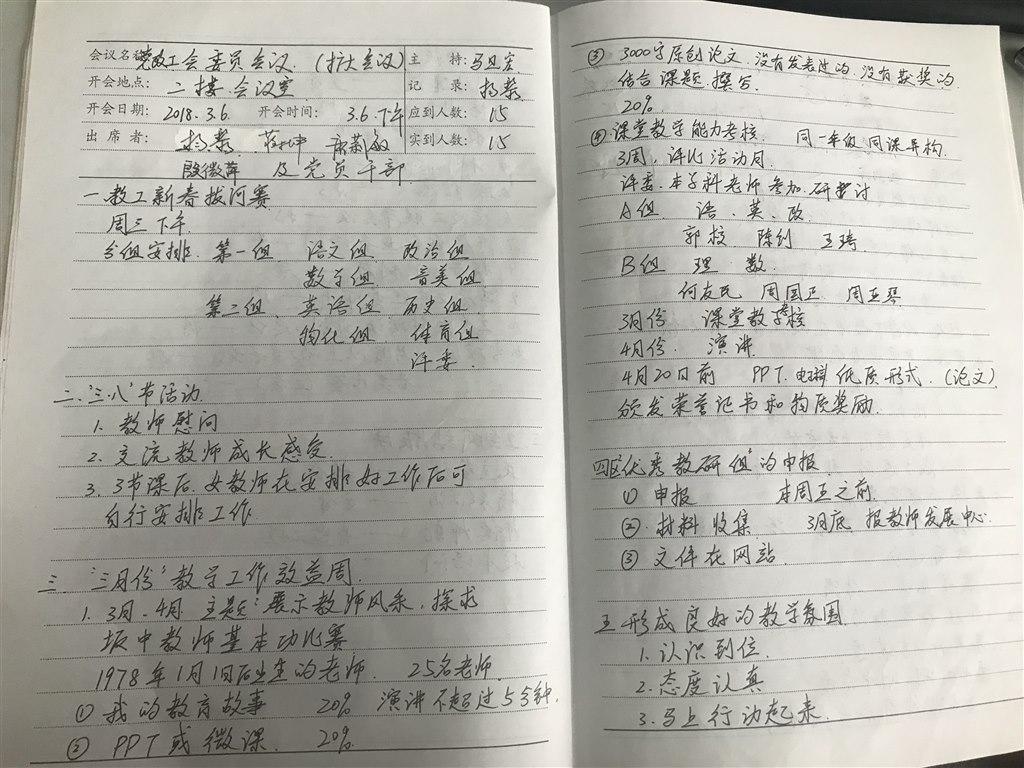 会议名称: 党政工会委员会议. (扩大会议) 主 持: 马卫宏
开会地点: 二楼会议室 记 录: 杨黎
开会日期: 2018.3.6 开会时间: 3.6.下午 应到人数: 15
出 席 者: 杨黎 实到人数: 15
殷微萍 及党员干部.
一.教工新春拔河赛
周三下午.
分组安排. 第一组 语文组 政治组
数学组 音美组
第二组. 英语组 历史组.
物化组 体育组
评委.
二."三.八"节活动.
1. 教师慰问
2. 交流教师成长感受.
3. 3节课后.女教师在安排好工作后可
自行安排工作
三."三月份"教学工作效益周.
1. 3月-4月 主题:展示教师风采.探求
坝中教师基本功比赛
1978年1月1日后出生的老师. 25名老师.
① 我的教育故事 20% 演讲不超过5分钟.
② PPT或微课. 20%.
③ 3000字原创论文.没有发表过的.没有获奖的
结合课题撰写.
20%
④ 课堂教学能力考核. 同一年级同课异构.
3周,评比活动月.
评委.本学科老师参加.研讨
A组 语、英、政.
郭校 陈钊 王琦
B组 理 数.
何友民 周国正 周亚琴
3月份 课堂教学考核
4月份. 演讲.
4月20日前 PPT.电子稿 纸质形式.(论文)
颁发荣誉证书和物质奖励.
四.区"优秀教研组"的申报
① 申报 本周五之前.
②. 材料收集 3月底 报教师发展中心.
③ 文件在网站.
五.形成良好的教学氛围.
1.认识到位.
2.态度认真
3.马上行动起来.